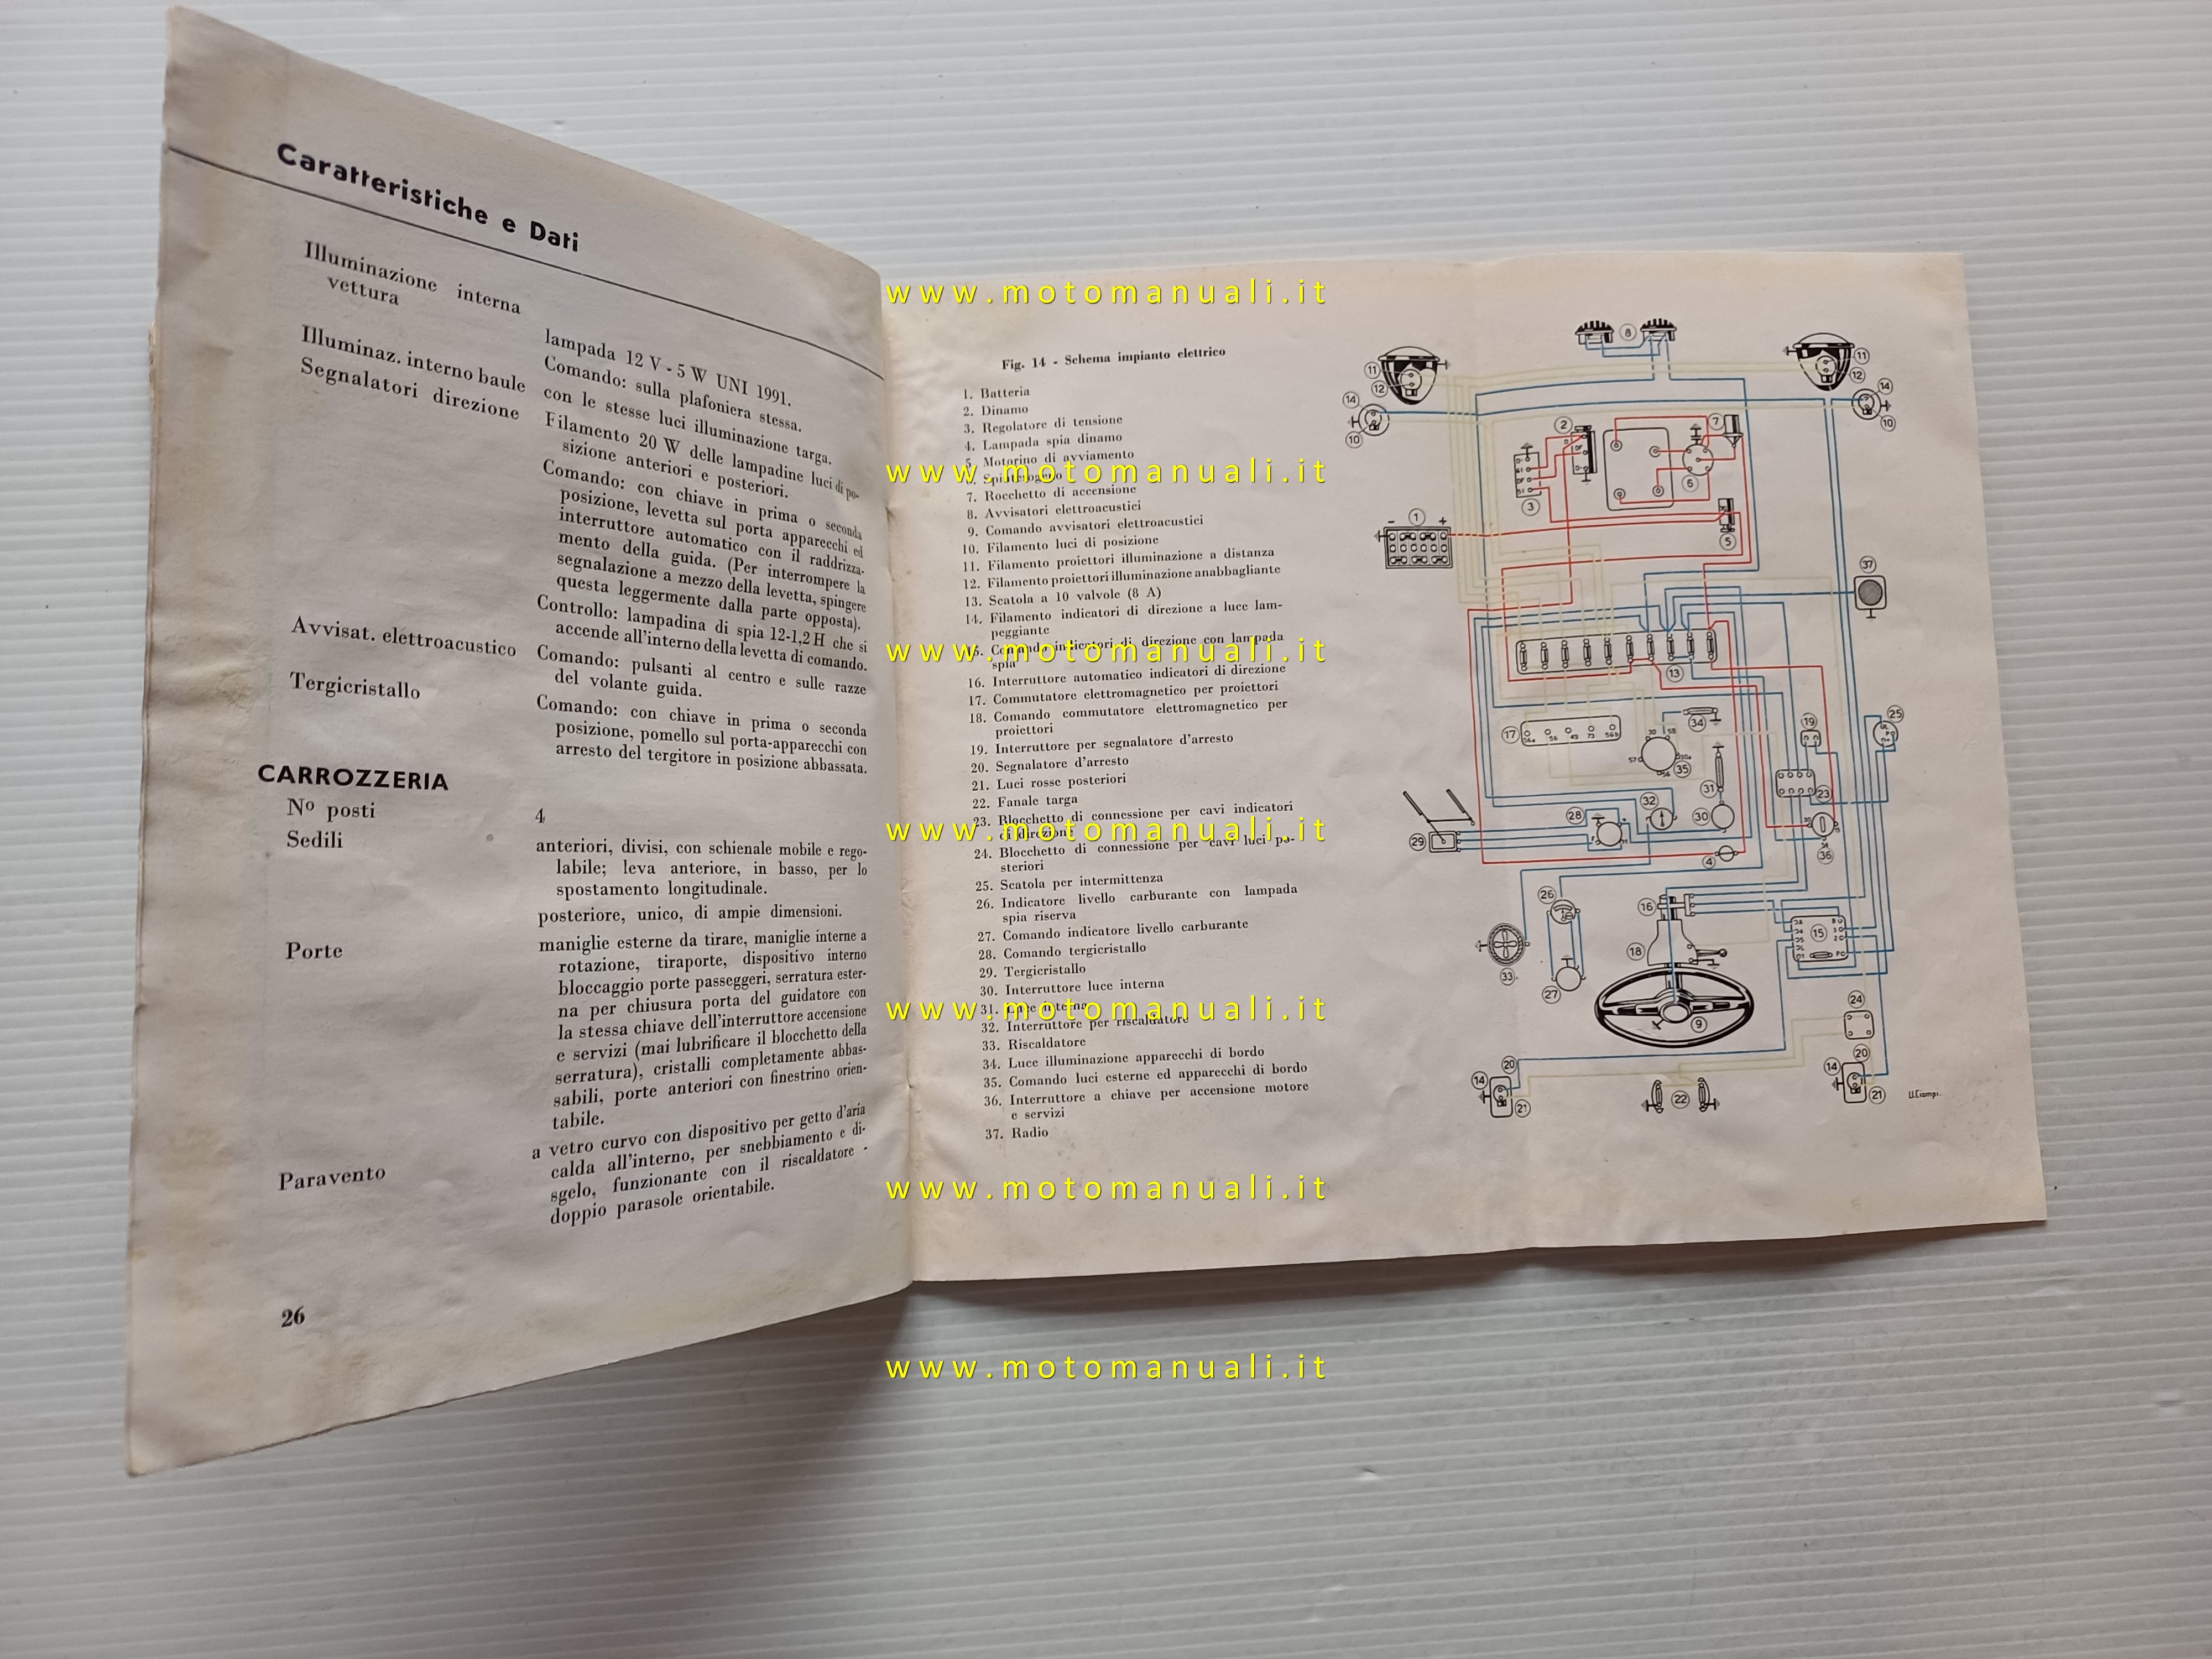 Caratteristiche e Dati
Illuminazione interna
vettura
lampada 12 V - 5 W UNI 1991.
Comando: sulla plafoniera stessa.
Illuminaz. interno baule
con le stesse luci illuminazione targa.
Segnalatori direzione
Filamento 20 W delle lampadine luci di po-
sizione anteriori e posteriori.
Comando: con chiave in prima o seconda
posizione, levetta sul porta apparecchi ed
interruttore automatico con il raddrizza-
mento della guida. (Per interrompere la
segnalazione a mezzo della levetta, spingere
questa leggermente dalla parte opposta).
Controllo: lampadina di spia 12-1,2 H che si
accende all'interno della levetta di comando.
Avvisat. elettroacustico
Comando: pulsanti al centro e sulle razze
del volante guida.
Tergicristallo
Comando: con chiave in prima o seconda
posizione, pomello sul porta-apparecchi con
arresto del tergitore in posizione abbassata.
CARROZZERIA
Nº posti
4
Sedili
anteriori, divisi, con schienale mobile e rego-
labile; leva anteriore, in basso, per lo
spostamento longitudinale.
posteriore, unico, di ampie dimensioni.
Porte
maniglie esterne da tirare, maniglie interne a
rotazione, tiraporte, dispositivo interno
bloccaggio porte passeggeri, serratura ester-
na per chiusura porta del guidatore con
la stessa chiave dell'interruttore accensione
e servizi (mai lubrificare il blocchetto della
serratura), cristalli completamente abbas-
sabili, porte anteriori con finestrino orien-
tabile.
Paravento
a vetro curvo con dispositivo per getto d'aria
calda all'interno, per snebbiamento e di-
sgelo, funzionante con il riscaldatore -
doppio parasole orientabile.
26
www.motomanuali.it
Fig. 14 - Schema impianto elettrico
1. Batteria
2. Dinamo
3. Regolatore di tensione
4. Lampada spia dinamo
5. Motorino di avviamento
www.motomanuali.it
6. Spinterogeno
7. Rocchetto di accensione
8. Avvisatori elettroacustici
9. Comando avvisatori elettroacustici
10. Filamento luci di posizione
11. Filamento proiettori illuminazione a distanza
12. Filamento proiettori illuminazione anabbagliante
13. Scatola a 10 valvole (8 A)
14. Filamento indicatori di direzione a luce lam-
peggiante
15. Comando indicatori di direzione con lampada
www.motomanuali.it
spia
16. Interruttore automatico indicatori di direzione
17. Commutatore elettromagnetico per proiettori
18. Comando commutatore elettromagnetico per
proiettori
19. Interruttore per segnalatore d'arresto
20. Segnalatore d'arresto
21. Luci rosse posteriori
22. Fanale targa
23. Blocchetto di connessione per cavi indicatori
di direzione
www.motomanuali.it
24. Blocchetto di connessione per cavi luci po-
steriori
25. Scatola per intermittenza
26. Indicatore livello carburante con lampada
spia riserva
27. Comando indicatore livello carburante
28. Comando tergicristallo
29. Tergicristallo
30. Interruttore luce interna
31. Luce interna
www.motomanuali.it
32. Interruttore per riscaldatore
33. Riscaldatore
34. Luce illuminazione apparecchi di bordo
35. Comando luci esterne ed apparecchi di bordo
36. Interruttore a chiave per accensione motore
e servizi
37. Radio
www.motomanuali.it
www.motomanuali.it
8
11
12
14
10
11
12
14
10
2
7
6
3
1
- +
5
37
13
17
56a 56 49 73 56b
34
30 58
57
35
19
25
31
23
32
28
30
29
4
36
26
16
15
18
33
27
9
24
20
14
21
22
20
14
21
U.Ciampi.